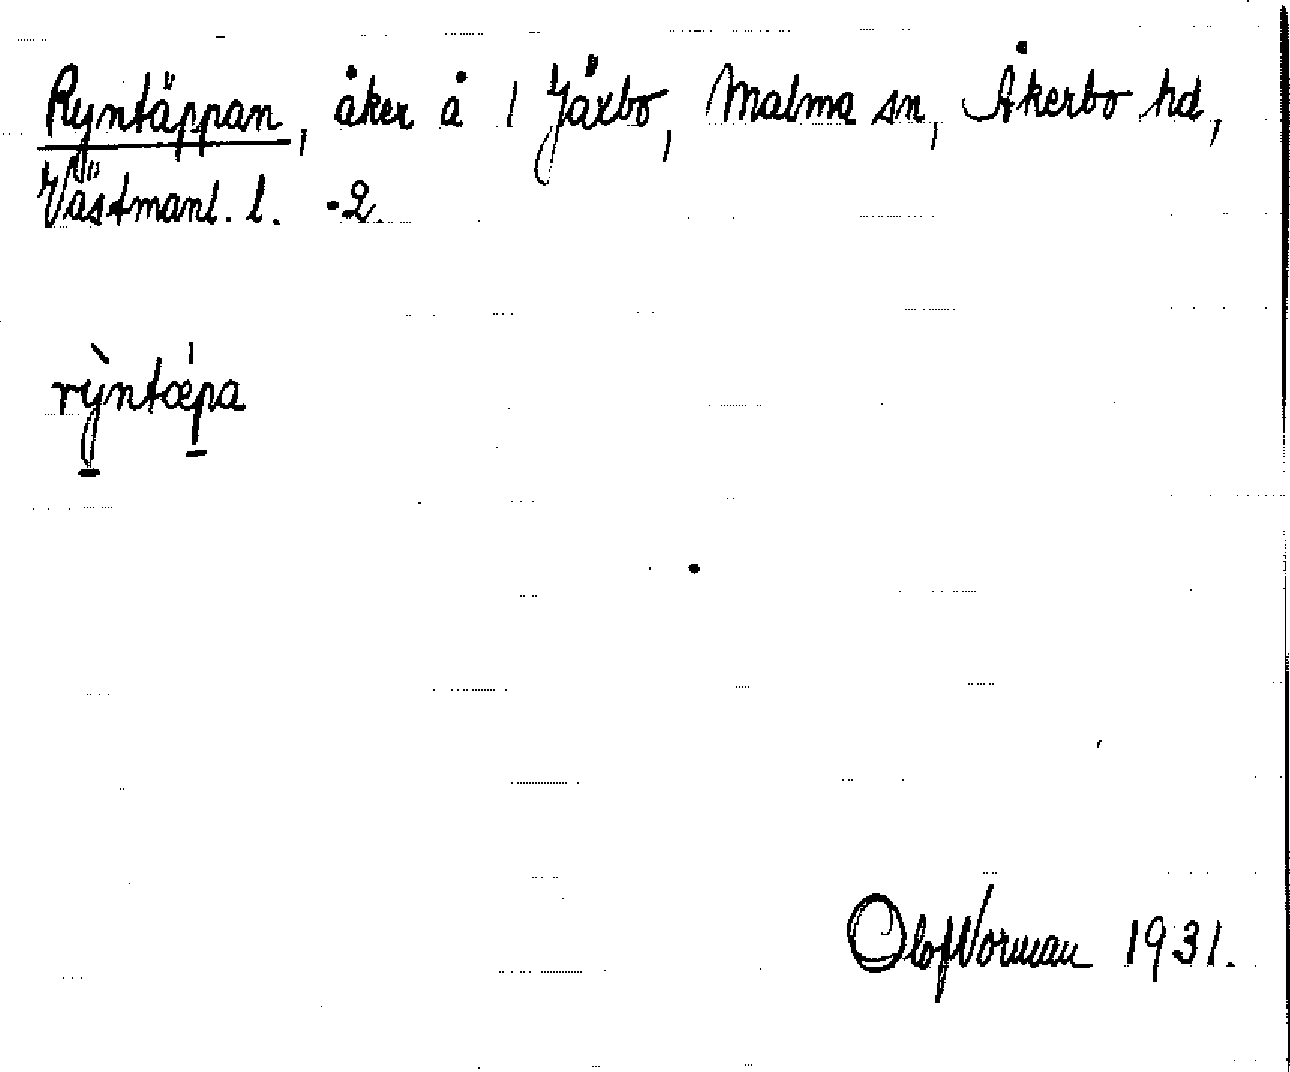 Ryntäppan, åker å 1 Jäxbo, Malma sn, Åkerbo hd,
Västmanl. l. -2.
rỳntæ̀pa
Olof Norman 1931.